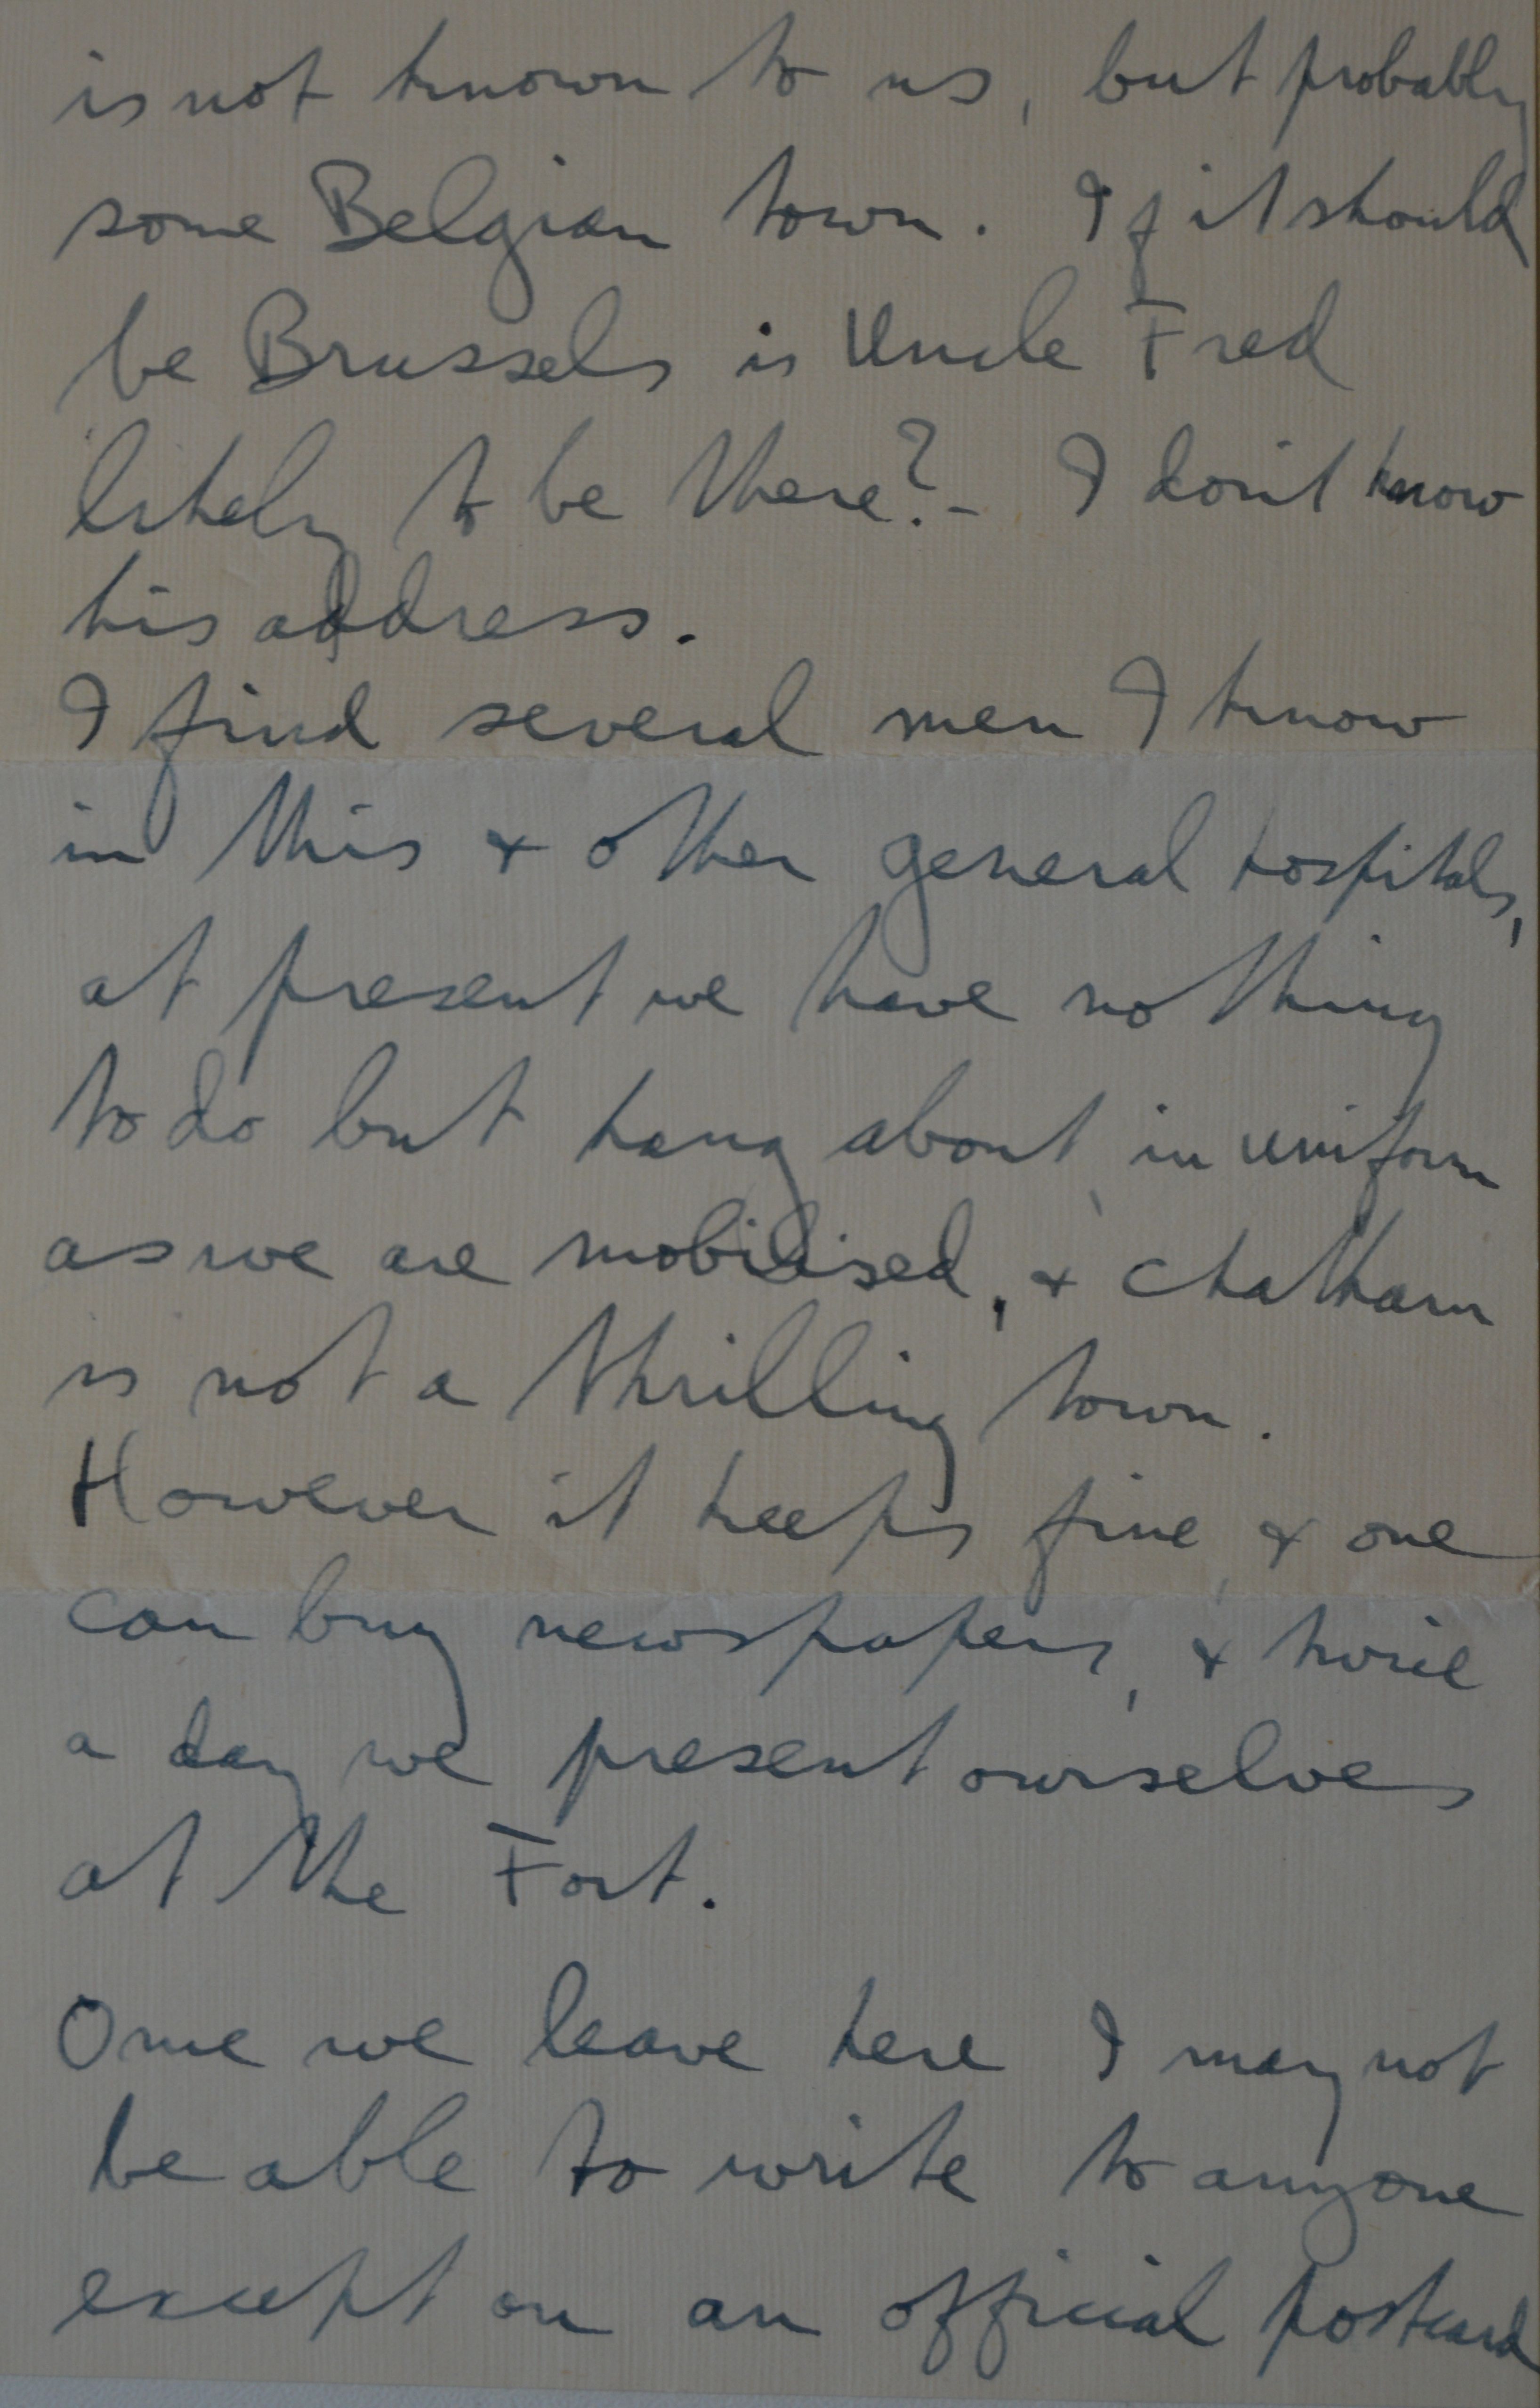 is not known to us, but probably
some Belgian town. If it should
be Brussels is Uncle Fred
likely to be there?- I don't know
his address.
I find several men I know
in this & other general hospitals,
at present we have nothing
to do but hang about, in uniform
as we are mobilised, & Chatham
is not a thrilling town.
However it keeps fine, & one
can buy newspapers, & twice
a day we present ourselves
at the Fort.
Once we leave here I may not
be able to write to anyone
except on an official postcard